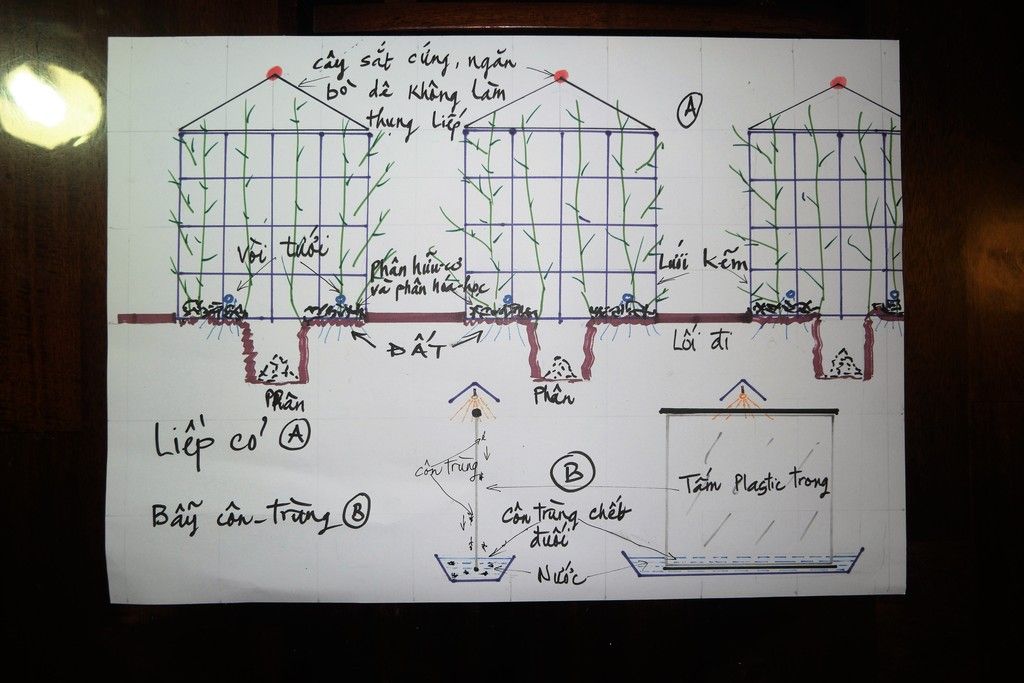 cây sắt cứng, ngăn
bò dê không làm
thung liếp
A
Vòi tưới
phân hữu-cơ
và phân hóa-học
Lưới kẽm
ĐẤT
Lối đi
Phân
Phân
Liếp cỏ A
côn trùng
B
Tấm Plastic Trong
Bẫy côn-trùng B
Côn trùng chết
đuối
Nước